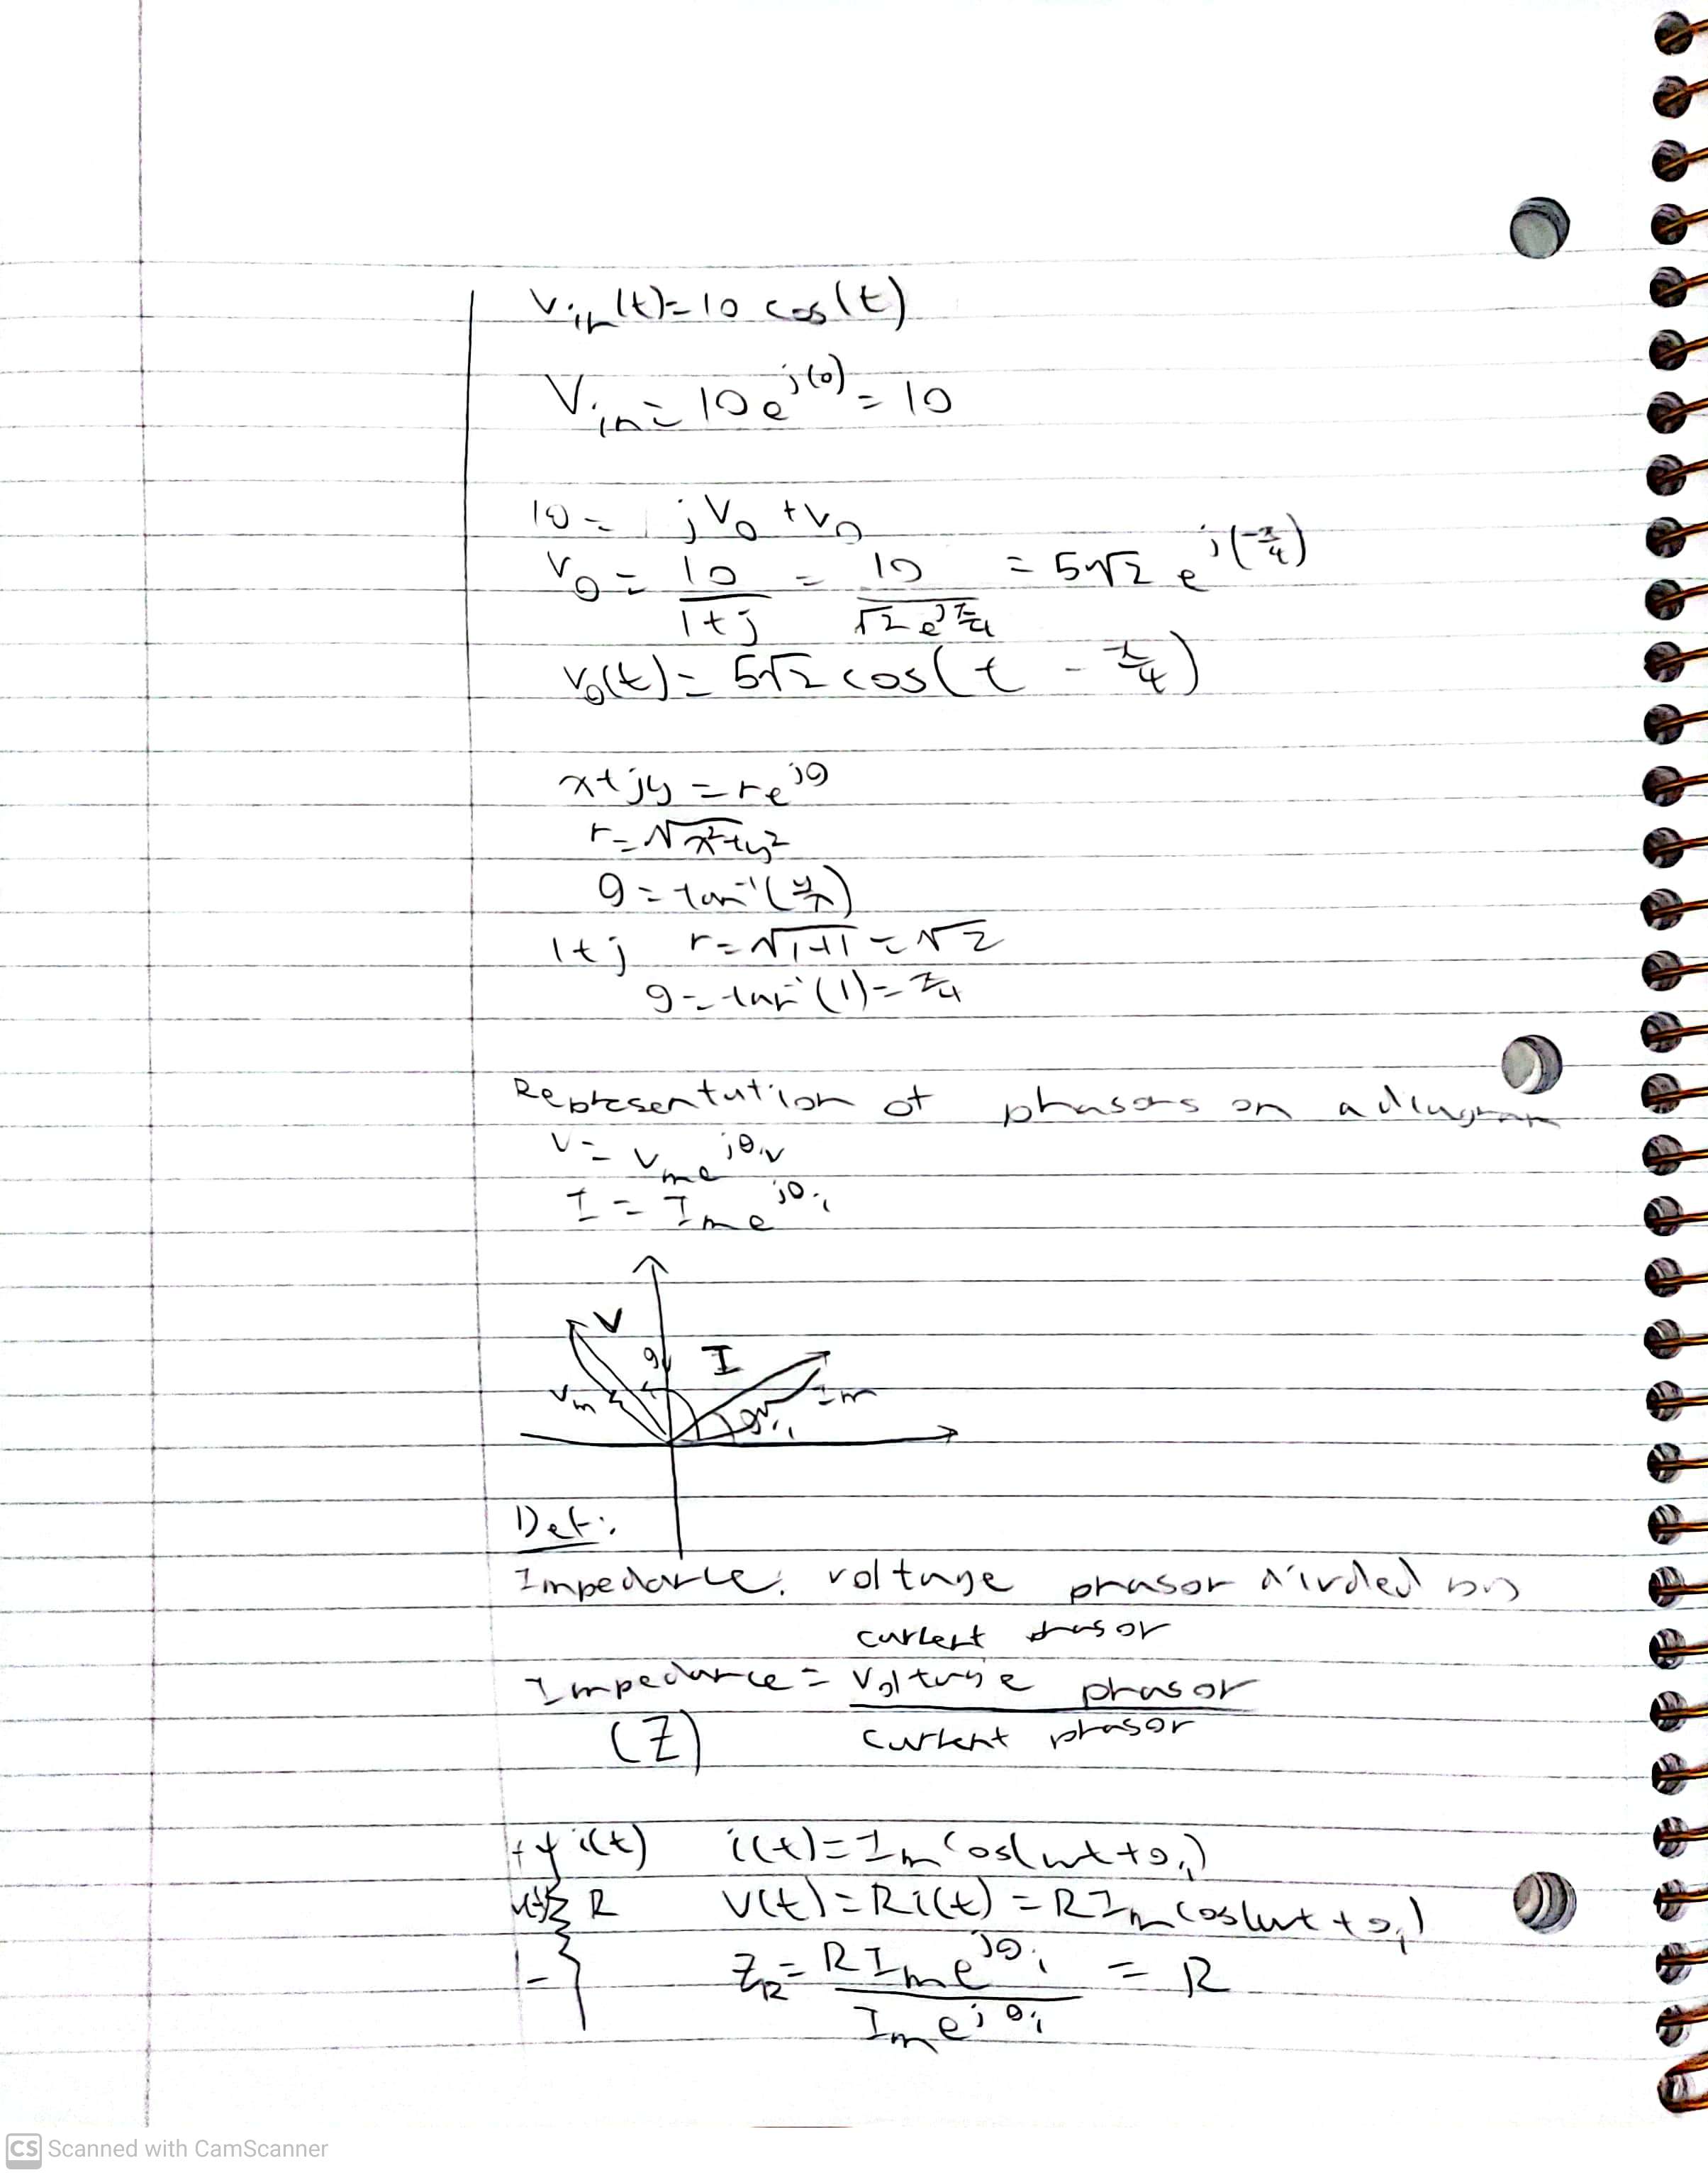 v_in(t) = 10 cos(t)
V_in = 10 e^{j(0)} = 10
10 = jV_0 + V_0
V_0 = 10/(1+j) = 10/(√2 e^{jπ/4}) = 5√2 e^{j(-π/4)}
v_0(t) = 5√2 cos(t - π/4)
x+jy = re^{jθ}
r = √(x²+y²)
θ = tan⁻¹(y/x)
1+j r = √(1+1) = √2
θ = tan⁻¹(1) = π/4
Representation of phasors on a diagram
V = V_m e^{jθ_v}
I = I_m e^{jθ_i}
V
θ_v I
V_m θ_i I_m
Def:
Impedance: voltage phasor divided by
current phasor
Impedance = voltage phasor
(Z) current phasor
+ i(t) i(t) = I_m cos(ωt+θ_i)
v(t) R v(t) = Ri(t) = RI_m cos(ωt+θ_i)
- Z_R = RI_m e^{jθ_i} / I_m e^{jθ_i} = R
CS Scanned with CamScanner